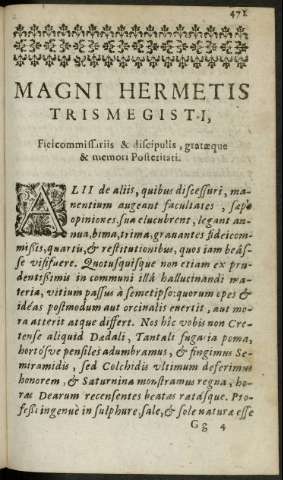 471
MAGNI HERMETIS
TRISMEGISTI,
Fideicommissariis & discipulis, gratæque
& memori Posteritati.
ALII de aliis, quibus discessuri, ma-
nentium augeant facultates, sæpe
opiniones sua elucubrent, legant an-
nua, bima, trima, granantes fideicom-
missis, quartis, & restitutionibus, quos iam beâs-
se visi fuere. Quotusquisque non etiam ex pru-
dentissimis in communi illâ hallucinandi ma-
teria, vitium passus à semetipso: quorum opes &
idéas postmodum aut orcinalis enervit, aut mo-
ra atterit atque differt. Nos hîc vobis non Cre-
tense aliquid Dædali, Tantali fugavia poma,
hortósve pensiles adumbramus, & fingimus Se-
miramidis, sed Colchidis vltimum deferimus
honorem, & Saturnina monstramus regna, ho-
ras Dearum recensentes beatas ratasque. Pro-
fessi ingenuè in sulphure, sale, & sole naturæ esse
Gg 4